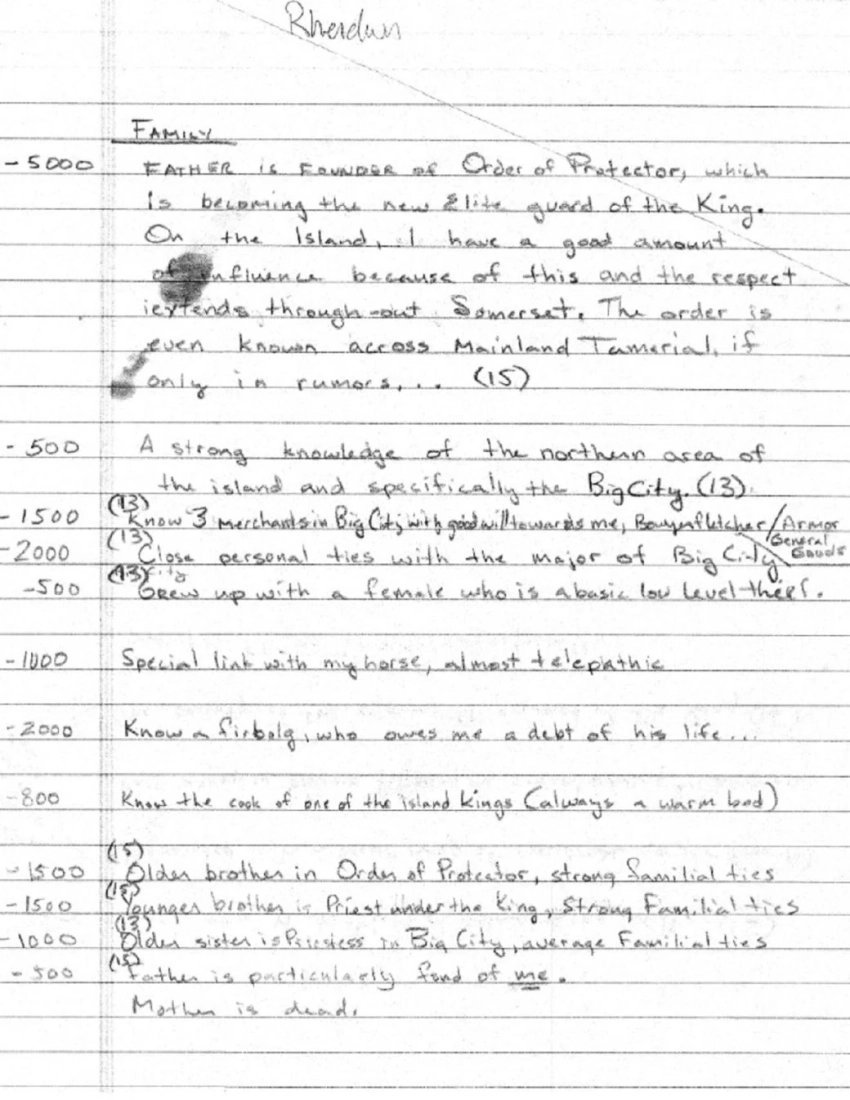 Rherdun
FAMILY
-5000 FATHER is FOUNDER of Order of Protector, which
is becoming the new Elite guard of the King.
On the Island, I have a good amount
of influence because of this and the respect
extends through-out Somerset. The order is
even known across Mainland Tamerial, if
only in rumors,... (15)
-500 A strong knowledge of the northern area of
the island and specifically the Big City. (13)
-1500 (13) Know 3 merchants in Big City with good will towards me, Bowyer/fletcher/Armor
General
Goods
-2000 (13) Close personal ties with the major of Big City
-500 (13) Grew up with a female who is a basic low level theif.
-1000 Special link with my horse, almost telepathic
-2000 Know a firbolg, who owes me a debt of his life...
-800 Know the cook of one of the island kings (always a warm bed)
(15)
-1500 Older brother in Order of Protector, strong familial ties
(15)
-1500 Younger brother is Priest under the King, Strong Familial ties
(13)
-1000 Older sister is Priestess in Big City, average Familial ties
-500 (15) Father is particularly fond of me.
Mother is dead.